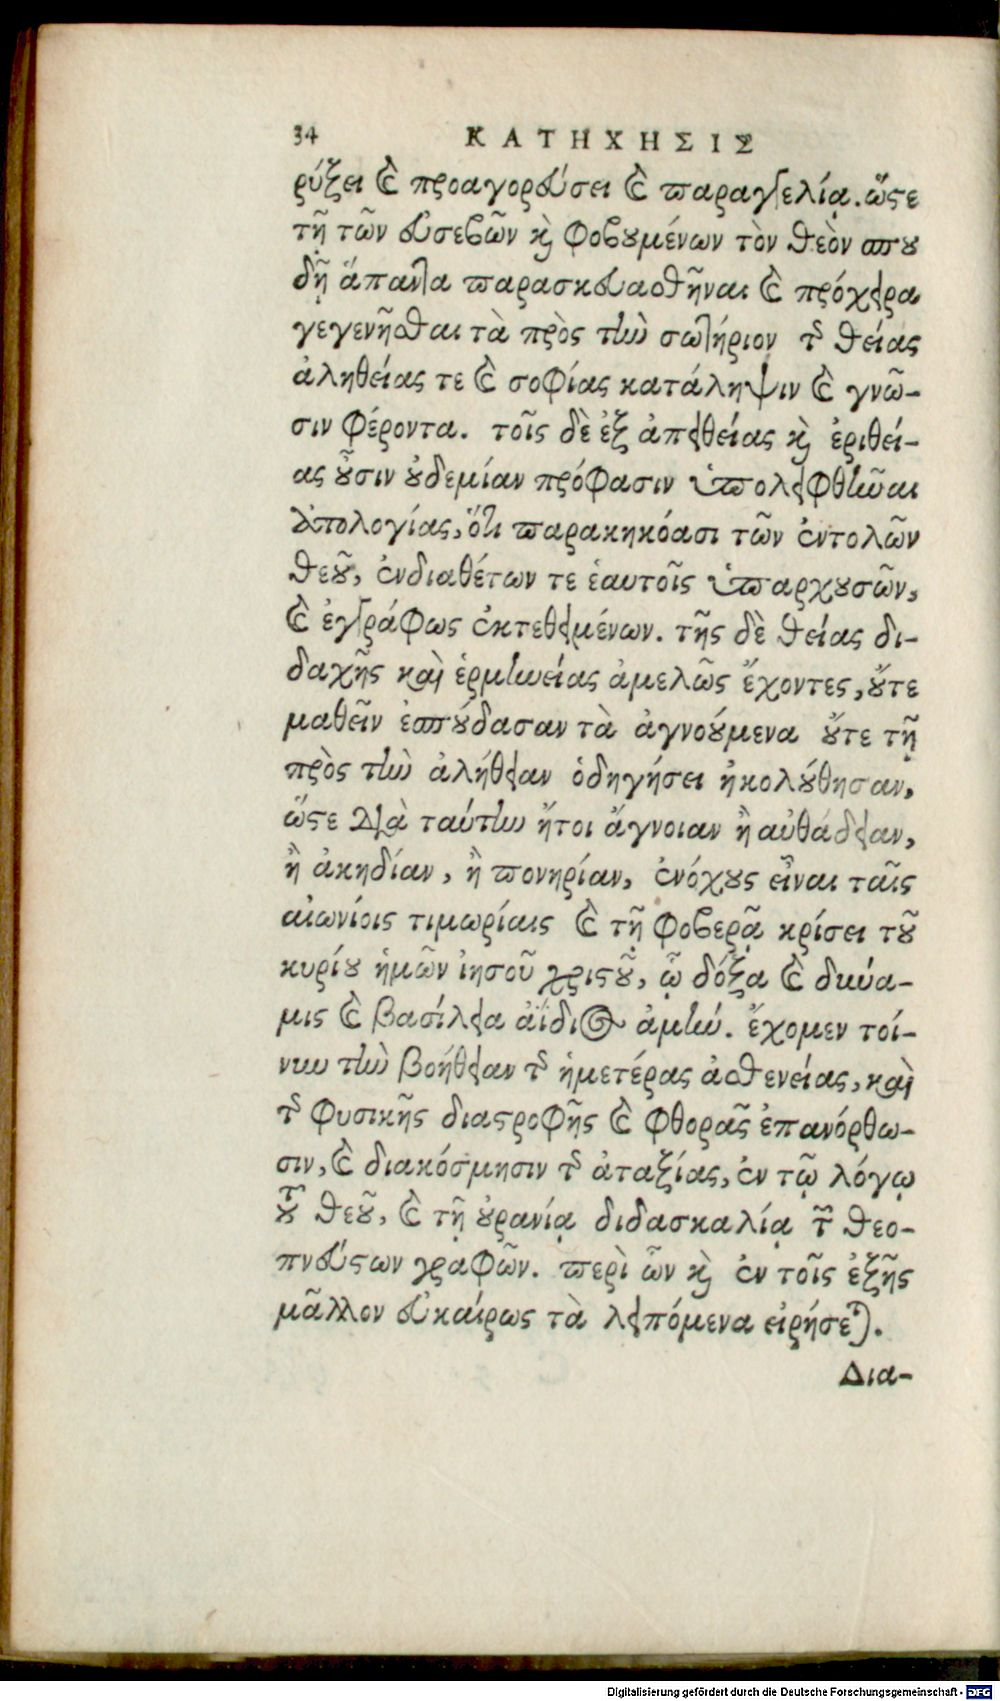 34 ΚΑΤΗΧΗΣΙΣ
ρύξει καὶ προαγορεύσει καὶ παραγγελίᾳ. ὥστε
τῇ τῶν εὐσεβῶν καὶ φοβουμένων τὸν θεὸν σπου
δῇ ἅπαντα παρασκευασθῆναι καὶ πρόχειρα
γεγενῆσθαι τὰ πρὸς τὴν σωτήριον τῆς θείας
ἀληθείας τε καὶ σοφίας κατάληψιν καὶ γνῶ-
σιν φέροντα. τοῖς δὲ ἐξ ἀπειθείας καὶ ἐριθεί-
ας οὖσιν οὐδεμίαν πρόφασιν ὑπολειφθῆναι
ἀπολογίας, ὅτι παρακηκόασι τῶν ἐντολῶν
θεοῦ, ἐνδιαθέτων τε ἑαυτοῖς ὑπαρχουσῶν,
καὶ ἐγγράφως ἐκτεθειμένων. τῆς δὲ θείας δι-
δαχῆς καὶ ἑρμηνείας ἀμελῶς ἔχοντες, οὔτε
μαθεῖν ἐσπούδασαν τὰ ἀγνοούμενα οὔτε τῇ
πρὸς τὴν ἀλήθειαν ὁδηγήσει ἠκολούθησαν,
ὥστε διὰ ταύτην ἤτοι ἄγνοιαν ἢ αὐθάδειαν,
ἢ ἀκηδίαν, ἢ πονηρίαν, ἐνόχους εἶναι ταῖς
αἰωνίοις τιμωρίαις καὶ τῇ φοβερᾷ κρίσει τοῦ
κυρίου ἡμῶν ἰησοῦ χριστοῦ, ᾧ δόξα καὶ δύνα-
μις καὶ βασίλεια ἀΐδιος ἀμήν. ἔχομεν τοί-
νυν τὴν βοήθειαν τῆς ἡμετέρας ἀσθενείας, καὶ
τῆς φυσικῆς διαστροφῆς καὶ φθορᾶς ἐπανόρθω-
σιν, καὶ διακόσμησιν τῆς ἀταξίας, ἐν τῷ λόγῳ
τοῦ θεοῦ, καὶ τῇ οὐρανίᾳ διδασκαλίᾳ τῶν θεο-
πνεύστων γραφῶν. περὶ ὧν καὶ ἐν τοῖς ἑξῆς
μᾶλλον εὐκαίρως τὰ λειπόμενα εἰρήσεται.
Δια-
Digitalisierung gefördert durch die Deutsche Forschungsgemeinschaft - DFG